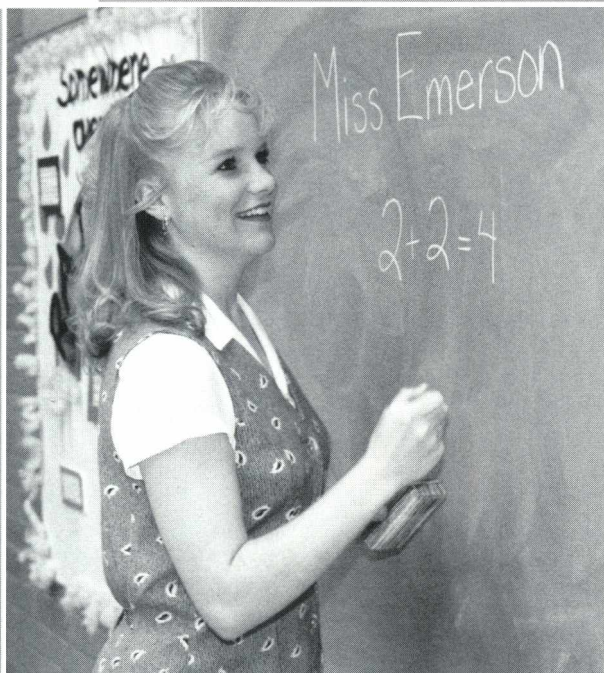 Somewhere
over
Miss Emerson
2+2=4